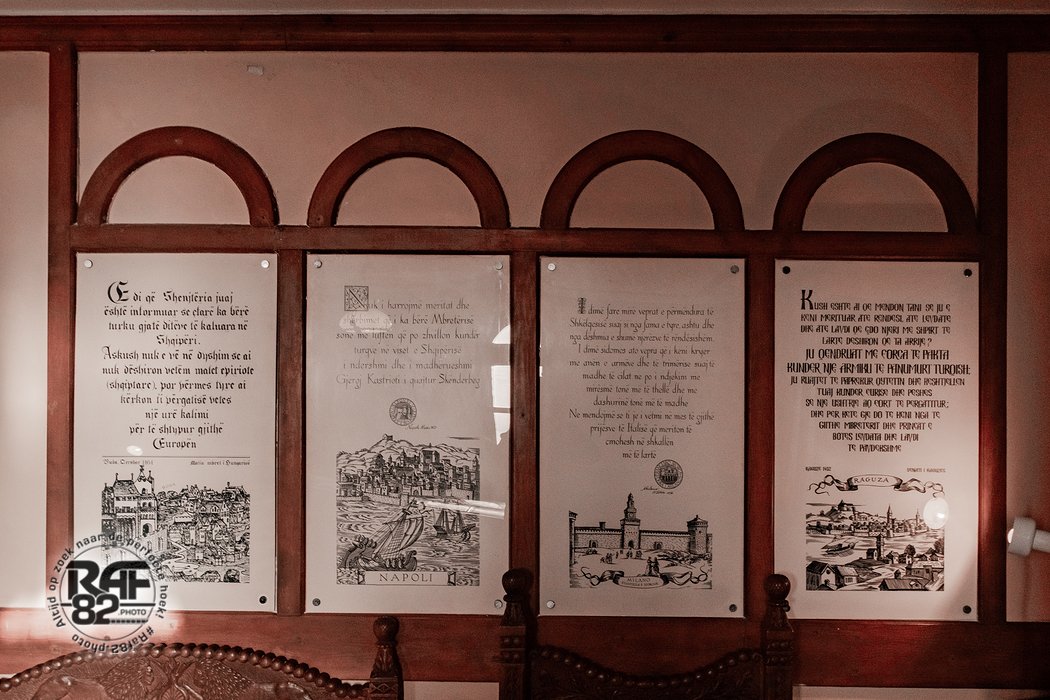 E di që Shenjtëria juaj
është informuar se çfarë ka bërë
turku gjatë ditëve të kaluara në
Shqipëri.
Askush nuk e vë në dyshim se ai
nuk dëshiron vetëm malet epiriote
(shqiptare), por përmes tyre ai
kërkon ti përgatisë vetes
një urë kalimi
për të shtypur gjithë
Europën
Buda, 1451
Matia mbret i Hungarisë
Nuk i harrojmë meritat dhe
shërbimet që i ka bërë Mbretërisë
sonë me luftën që po zhvillon kundër
turqve në viset e Shqipërisë
i ndershmi dhe i madhërueshmi
Gjergj Kastrioti i quajtur Skënderbeg
NAPOLI
I dimë fare mirë veprat e përmendura të
Shkëlqesisë suaj si nga fama e tyre ashtu dhe
nga dëshmia e shumë njerëzve të rëndësishëm.
I dimë sidomos ato vepra që i keni kryer
me anën e armëve dhe të trimërisë suaj të
madhe të cilat ne po i ndjekim me
mirësinë tonë më të thellë dhe me
dashurinë tonë më të madhe
Ne mendojmë se ti je i vetmi ne mes të gjithë
prijësve të Italisë që meriton të
çmohesh në shkallën
më të lartë
MILANO
KUSH ESHTE AI QE MENDON TANI SE JU E
KENI MERITUAR ATE RENDESI, ATE LEVDATE
DHE ATE LAVDI QE ÇDO NJERI ME SHPIRT TE
LARTE DESHIRON QE TA ARRIJE ?
JU QENDRUAT ME FORCA TE PAKTA
KUNDER NJE ARMIKU TE PANUMURT TURQISH;
JU RUAJTET TE PAPREKUR QYTETIN DHE KESHTJELLEN
TUAJ KUNDER FURISE DHE PESHES
SE NJE USHTRIE AQ FORT TE PERGATITUR;
DHE PER KETE GJE DO TE KENI NGA TE
GJITHE MBRETERIT DHE PRINCAT E
BOTES LEVDATA DHE LAVDI
TE PAVDEKSHME
RAGUZA
Altijd op zoek naar de perfecte hoek!
RAF
82
.PHOTO
#Raf82.photo